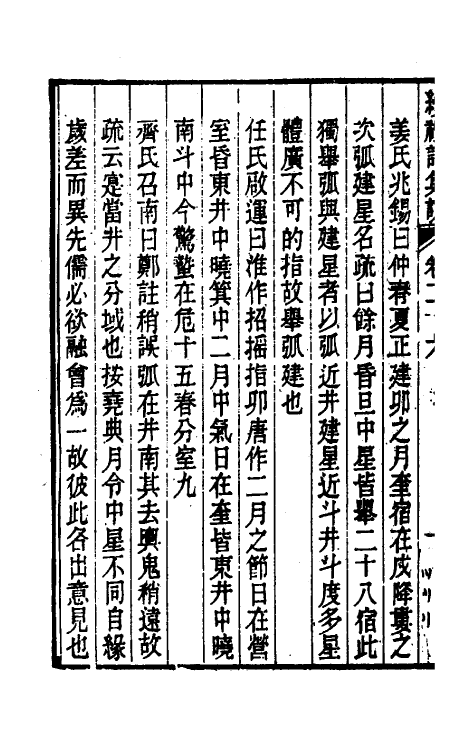 姜氏兆錫曰仲春夏正建卯之月奎宿在戍降婁之
次弧建星名疏曰餘月昏旦中星皆舉二十八宿此
獨舉弧與建星者以弧近井建星近斗井斗度多星
體廣不可的指故舉弧建也
任氏啟運曰淮作招搖指卯唐作二月之節日在營
室昏東井中曉箕中二月中氣日在奎皆東井中曉
南斗中今驚蟄在危十五春分室九
齊氏召南曰鄭註稍誤弧在井南其去輿鬼稍遠故
疏云寔當井之分域也按堯典月令中星不同自緣
歲差而異先儒必欲融會為一故彼此各出意見也